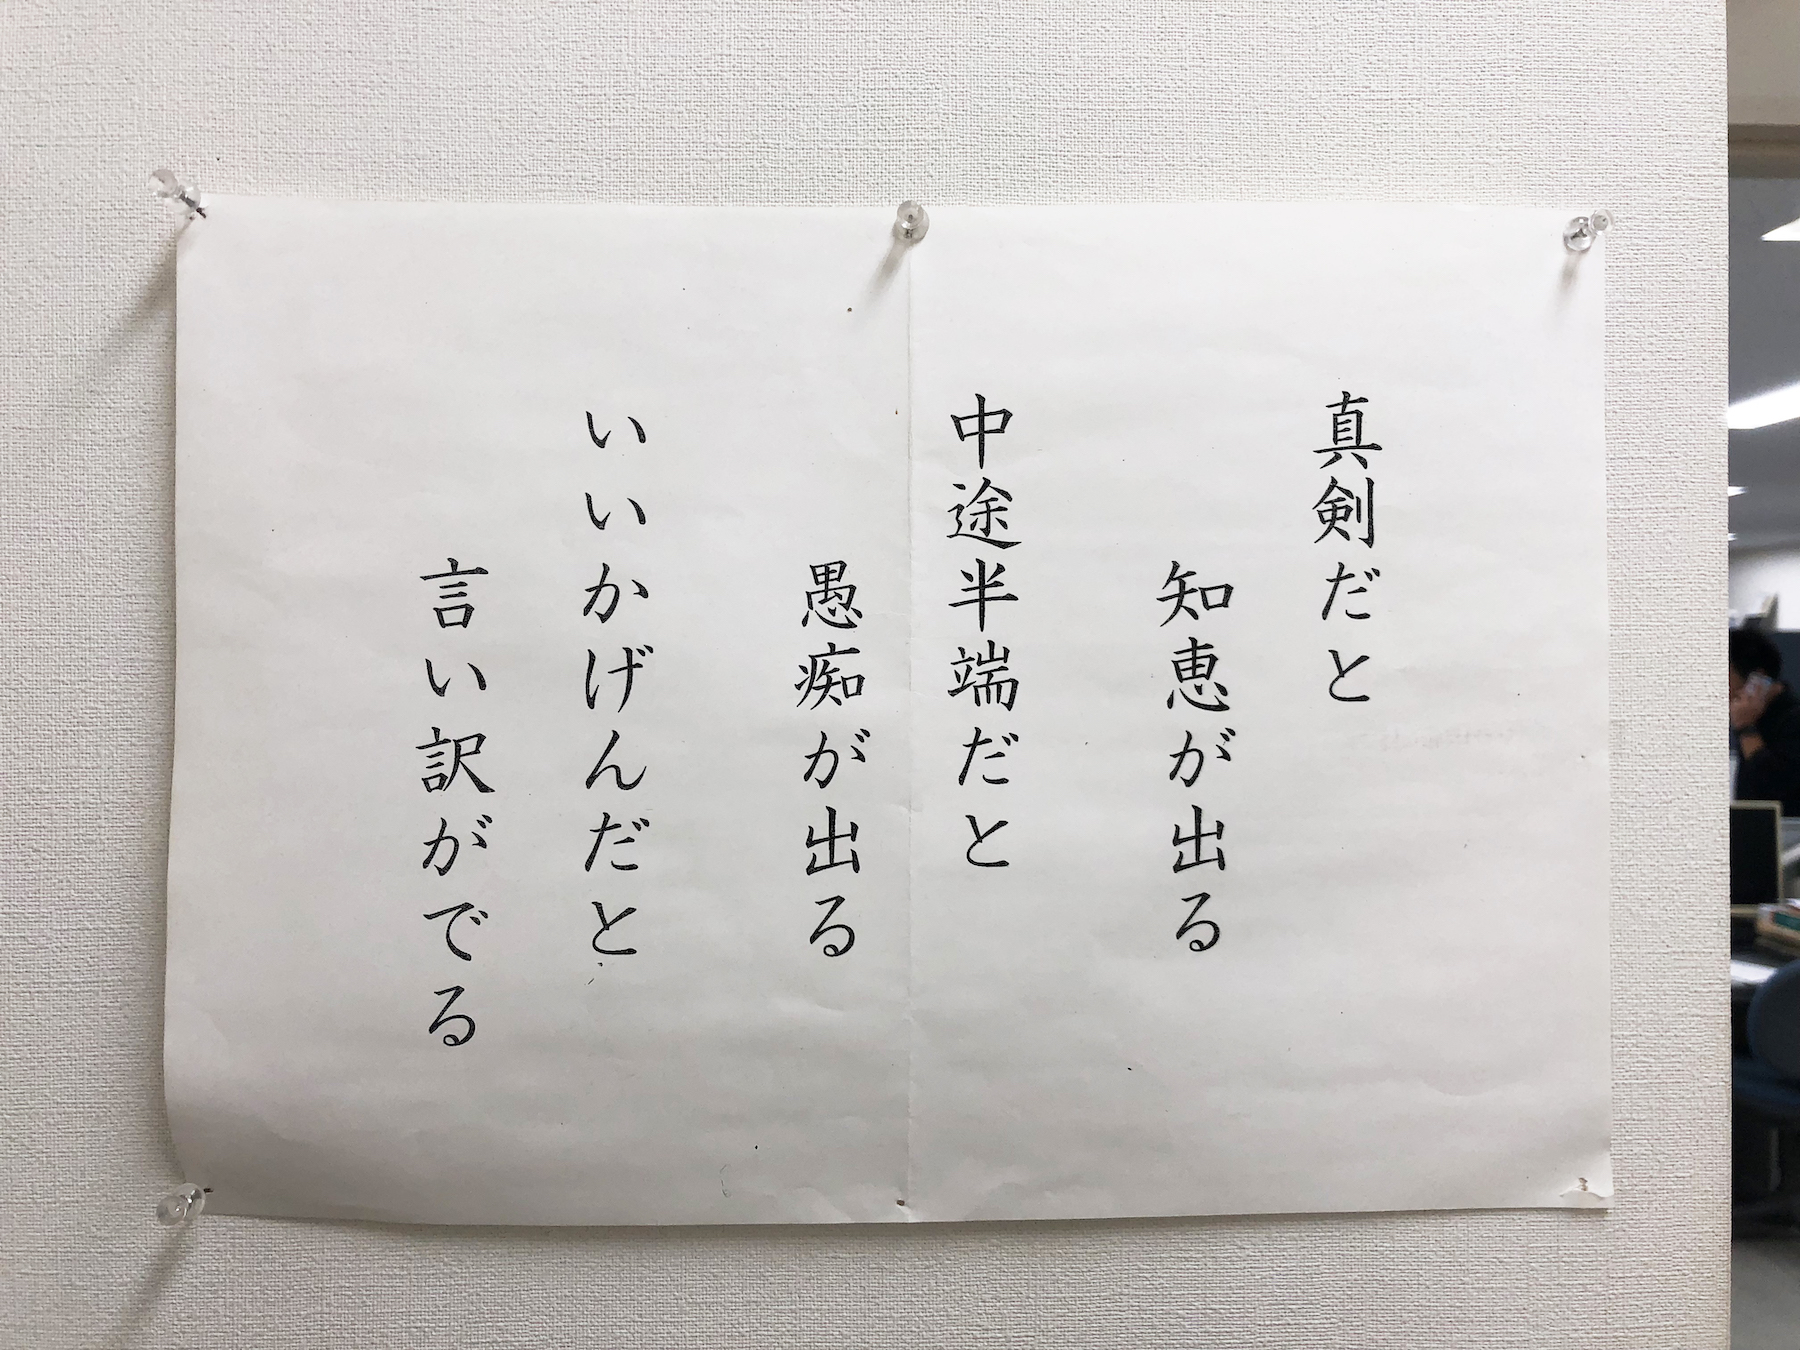 真剣だと
知恵が出る
中途半端だと
愚痴が出る
いいかげんだと
言い訳がでる